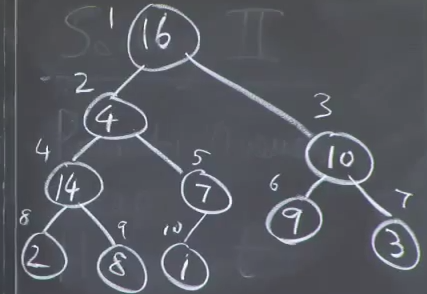 1 16
2 4
3 10
4 14
5 7
6 9
7 3
8 2
9 8
10 1